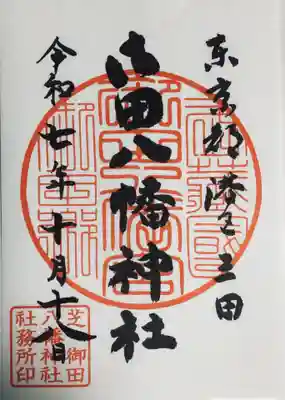 東京都港区三田
御田八幡神社
令和七年十月十八日
芝御田
八幡神社
社務所印